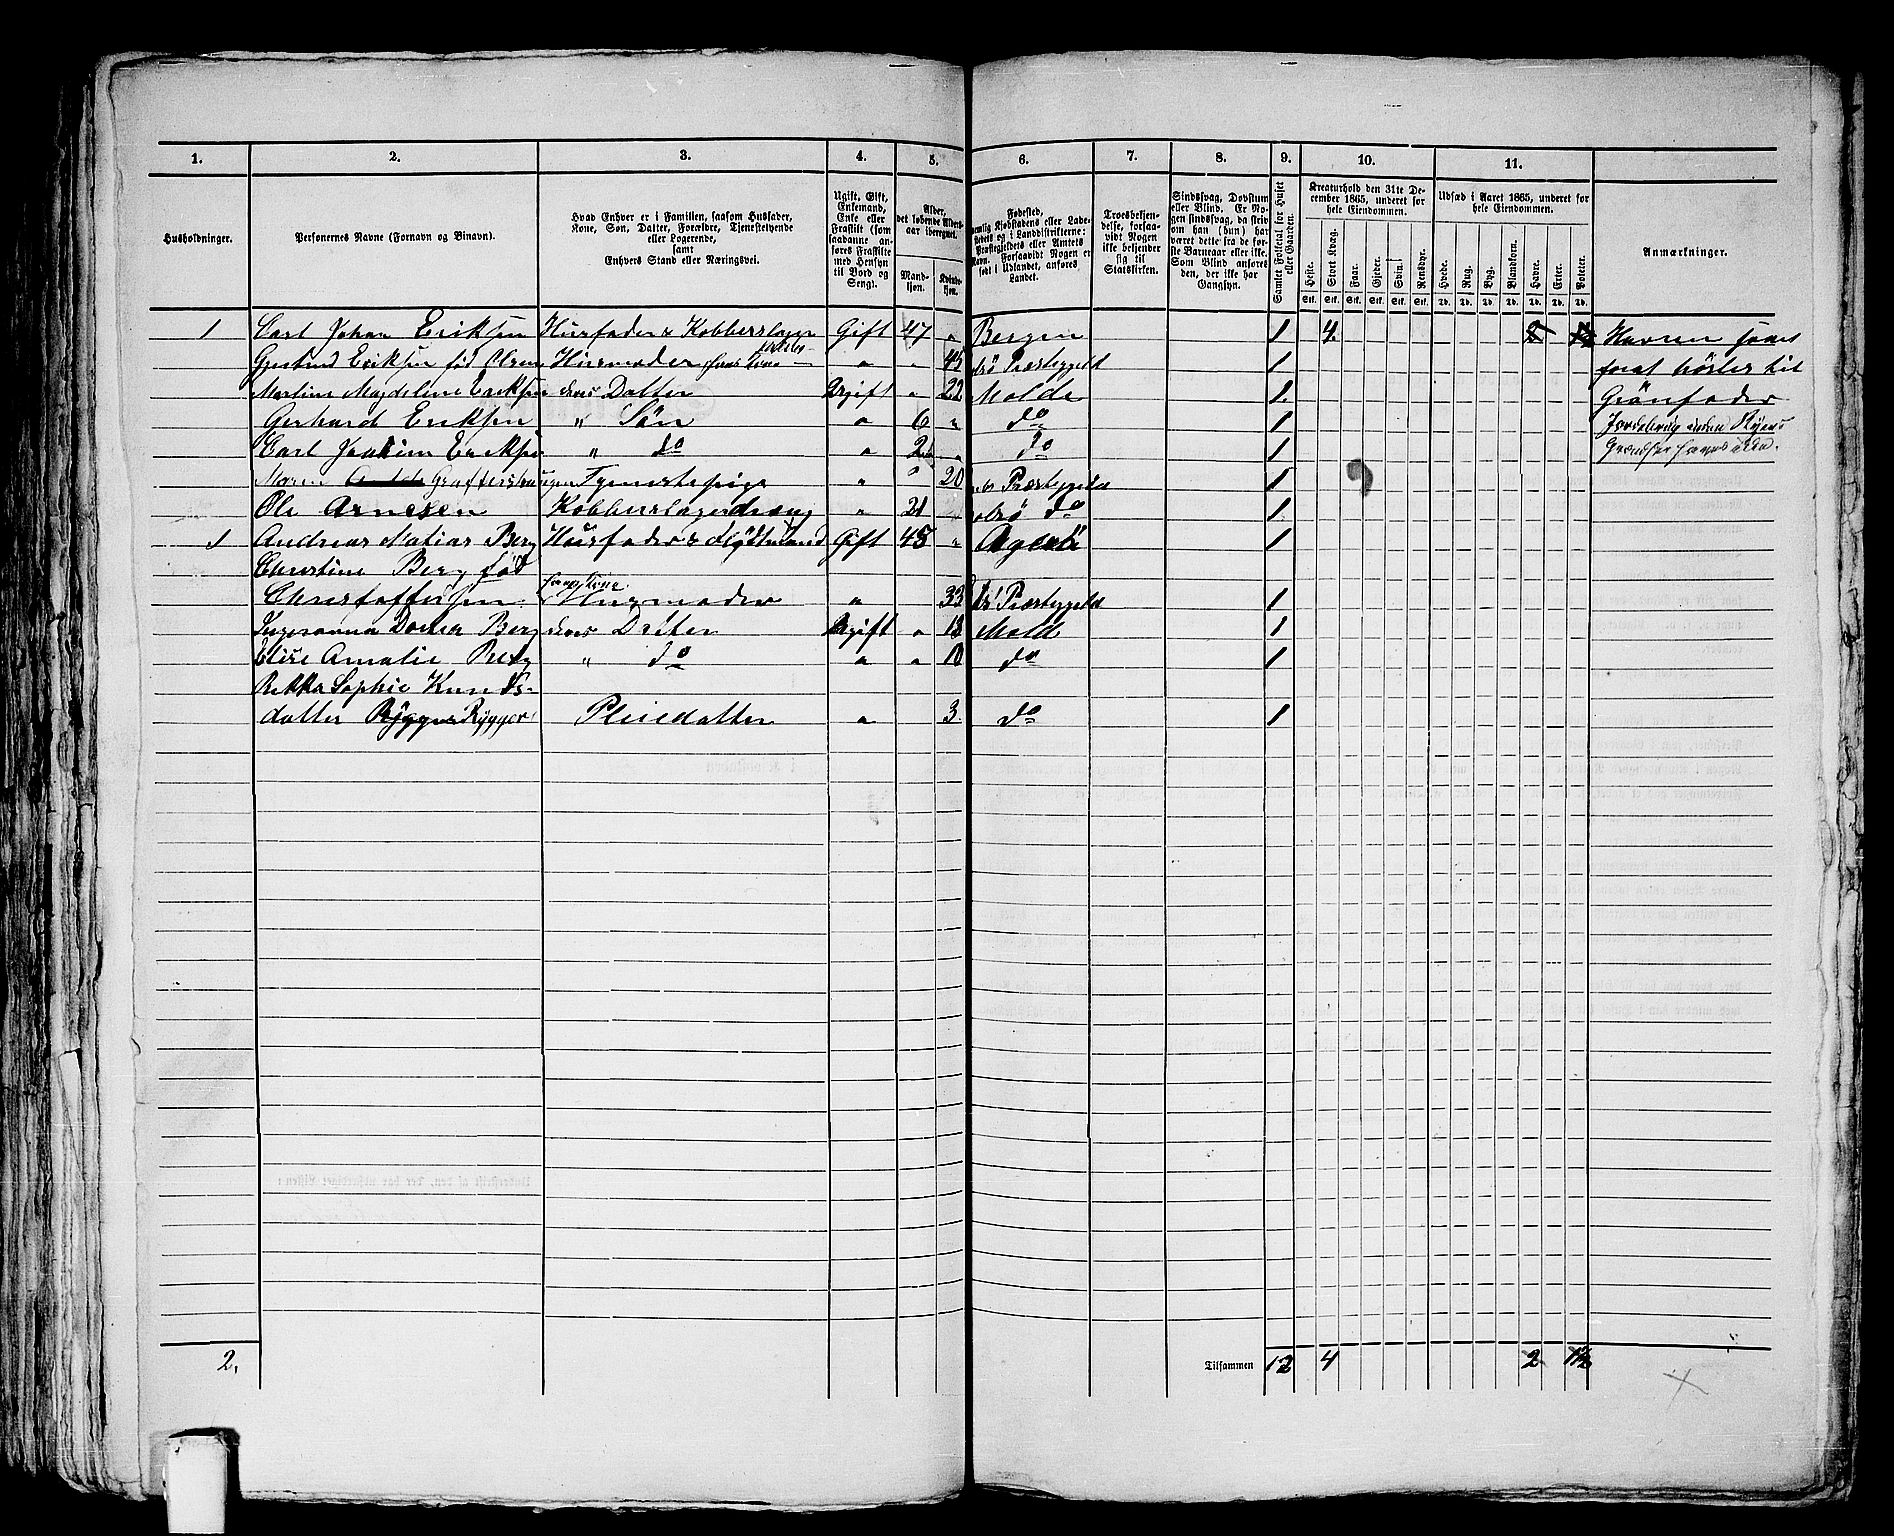 1. 2. 3. 4. 5. 6. 7. 8. 9. 10. 11.
Husholdninger.
Personernes Navne (Fornavn og Binavn).
Hvad Enhver er i Familien, saasom Husfader,
Kone, Søn, Datter, Forældre, Tjenestetyende
eller Logerende,
samt
Enhvers Stand eller Næringsvei.
Ugift, Gift,
Enkemand,
Enke eller
Fraskilt (som
saadanne an-
føres Fraskilte
med Hensyn
til Bord og
Seng).
Alder,
det løbende Alders-
aar iberegnet.
Mand-
kjøn.
Kvinde-
kjøn.
Fødested,
Kjøbstadens eller Lade-
stedets og i Landdistrikterne:
Præstegjeldets eller Amtets
Navn. Forsaavidt Nogen er
født i Udlandet, anføres
Landet.
Troesbekjen-
delse, forsaa-
vidt Nogen
ikke bekjender
sig til
Statskirken.
Sindssvag, Døvstum
eller Blind. Er No-
gen sindssvag, da skriv
om han (hun) har
været dette fra de før-
ste Barneaar eller ikke.
Som Blind anføres
den, der ikke har
Gangsyn.
Samlet Folketal for Huset
eller Gaarden.
Kreaturhold den 31te De-
cember 1865, underet for
hele Eiendommen.
Heste. Stort Kvæg. Faar. Gjeder. Svin. Rensdyr.
Stk. Stk. Stk. Stk. Stk. Stk.
Udsæd i Aaret 1865, underet for
hele Eiendommen.
Hvede. Rug. Byg. Blandkorn. Havre. Erter. Poteter.
Td. Td. Td. Td. Td. Td. Td.
Anmærkninger.
1 Carl Johan Eriksen Husfader & Kobberslager Gift 47 " Bergen 1 4. 2
Gjertrud Eriksen fød Olsen Husmoder hans Kone " " 45 Præstegjeld 1
Martine Magdelene Eriksen deres Datter Ugift " 22 Molde 1
Gerhard Eriksen " Søn " 6 " do 1
Carl Joakim Eriksen " do " 2 " do 1
Maren Tjenestepige " " 20 Præstegjeld 1
Ole Arnesen Kobberslagerdreng " 21 do 1
1 Andreas Matias Berg Husfader & Gift 48 " 1
Christine Berg fød
Christoffersen hans Kone Husmoder " 33 Præstegjeld 1
Datter Ugift " Mold 1
Elise Amalie Berg " do " " 10 do 1
Rikka Sophie Knuds-
datter Rygger Pleiedatter " 3 do 1
Havren saaet
forat høstes til
Grønfoder
2. Tilsammen 12 4 2 1½